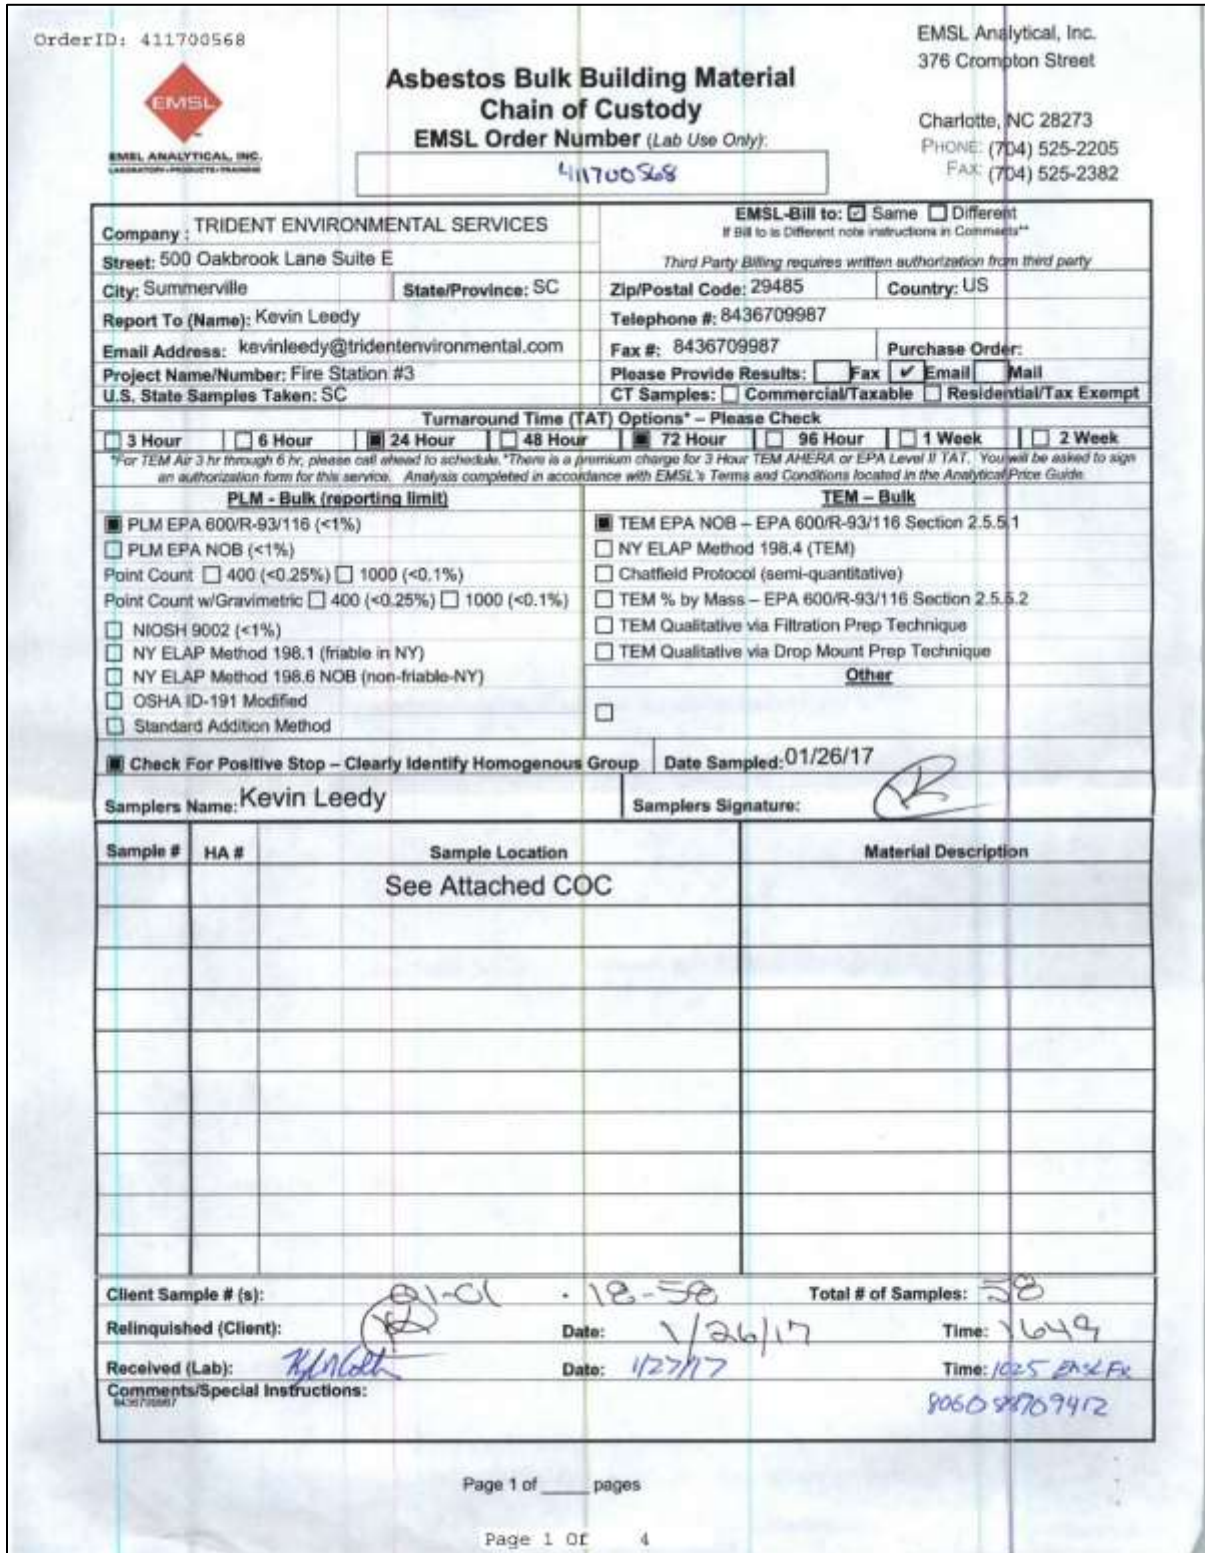 OrderID: 411700568
EMSL Analytical, Inc.
376 Crompton Street
Charlotte, NC 28273
PHONE: (704) 525-2205
FAX: (704) 525-2382
EMSL
EMSL ANALYTICAL, INC.
LABORATORY•PRODUCTS•TRAINING
Asbestos Bulk Building Material
Chain of Custody
EMSL Order Number (Lab Use Only):
411700568
Company : TRIDENT ENVIRONMENTAL SERVICES
EMSL-Bill to: ☑ Same ☐ Different
If Bill to is Different note instructions in Comments**
Street: 500 Oakbrook Lane Suite E
Third Party Billing requires written authorization from third party
City: Summerville State/Province: SC Zip/Postal Code: 29485 Country: US
Report To (Name): Kevin Leedy Telephone #: 8436709987
Email Address: kevinleedy@tridentenvironmental.com Fax #: 8436709987 Purchase Order:
Project Name/Number: Fire Station #3 Please Provide Results: ☐ Fax ☑ Email ☐ Mail
U.S. State Samples Taken: SC CT Samples: ☐ Commercial/Taxable ☐ Residential/Tax Exempt
Turnaround Time (TAT) Options* – Please Check
☐ 3 Hour ☐ 6 Hour ■ 24 Hour ☐ 48 Hour ■ 72 Hour ☐ 96 Hour ☐ 1 Week ☐ 2 Week
*For TEM Air 3 hr through 6 hr, please call ahead to schedule. *There is a premium charge for 3 Hour TEM AHERA or EPA Level II TAT. You will be asked to sign
an authorization form for this service. Analysis completed in accordance with EMSL's Terms and Conditions located in the Analytical Price Guide.
PLM - Bulk (reporting limit)
■ PLM EPA 600/R-93/116 (<1%)
☐ PLM EPA NOB (<1%)
Point Count ☐ 400 (<0.25%) ☐ 1000 (<0.1%)
Point Count w/Gravimetric ☐ 400 (<0.25%) ☐ 1000 (<0.1%)
☐ NIOSH 9002 (<1%)
☐ NY ELAP Method 198.1 (friable in NY)
☐ NY ELAP Method 198.6 NOB (non-friable-NY)
☐ OSHA ID-191 Modified
☐ Standard Addition Method
TEM – Bulk
■ TEM EPA NOB – EPA 600/R-93/116 Section 2.5.5.1
☐ NY ELAP Method 198.4 (TEM)
☐ Chatfield Protocol (semi-quantitative)
☐ TEM % by Mass – EPA 600/R-93/116 Section 2.5.5.2
☐ TEM Qualitative via Filtration Prep Technique
☐ TEM Qualitative via Drop Mount Prep Technique
Other
☐
■ Check For Positive Stop – Clearly Identify Homogenous Group Date Sampled: 01/26/17
Samplers Name: Kevin Leedy Samplers Signature:
Sample # HA # Sample Location Material Description
See Attached COC
Client Sample # (s): 01-01 - 18-58 Total # of Samples: 58
Relinquished (Client): Date: 1/26/17 Time: 1649
Received (Lab): Date: 1/27/17 Time: 1025 EMSL Fx
Comments/Special Instructions:
8436709987
8060 88709412
Page 1 of ____ pages
Page 1 Of 4